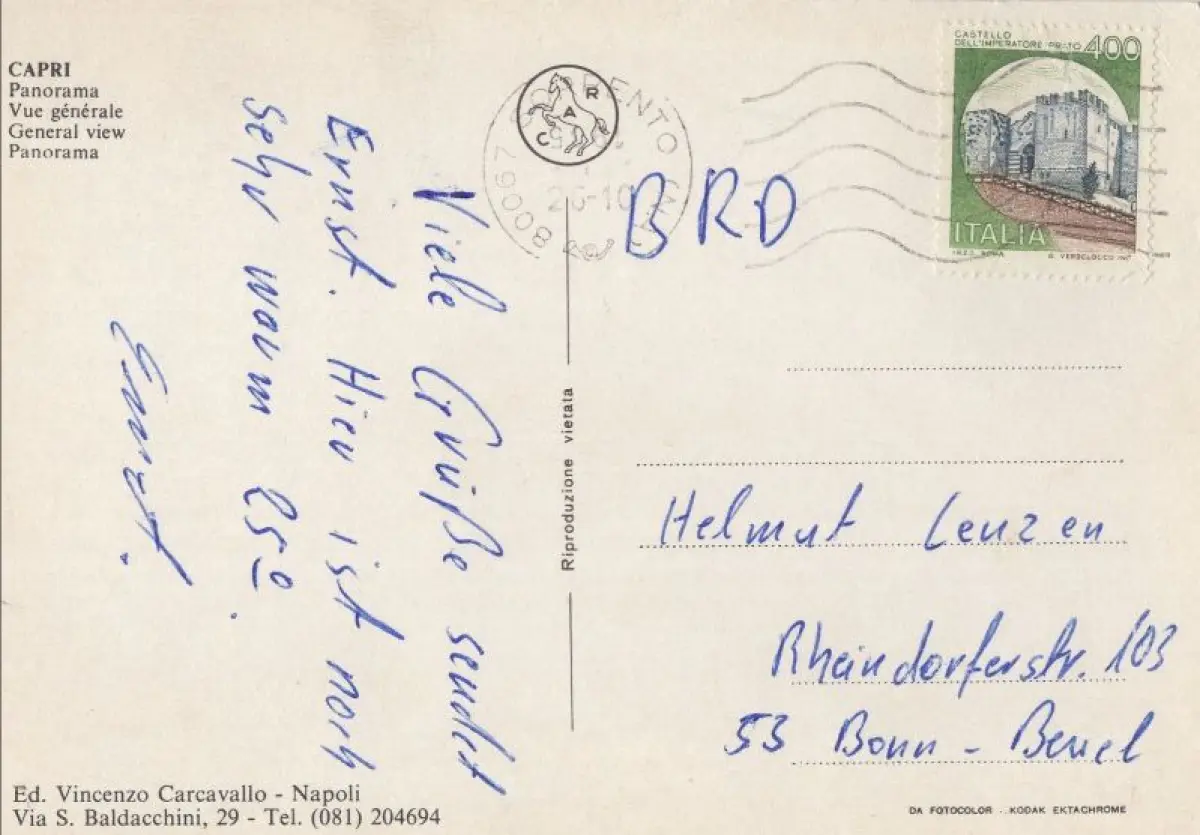 CAPRI
Panorama
Vue générale
General view
Panorama
Viele Grüße sendet
Ernst. Hier ist noch
sehr warm 25º.
Ernst.
Ed. Vincenzo Carcavallo - Napoli
Via S. Baldacchini, 29 - Tel. (081) 204694
Riproduzione vietata
CAR
80067
26-10
BRD
CASTELLO
DELL'IMPERATORE PRATO 400
ITALIA
I.P.Z.S. ROMA
Helmut Lenzen
Rheindorferstr. 103
53 Bonn - Beuel
DA FOTOCOLOR - KODAK EKTACHROME